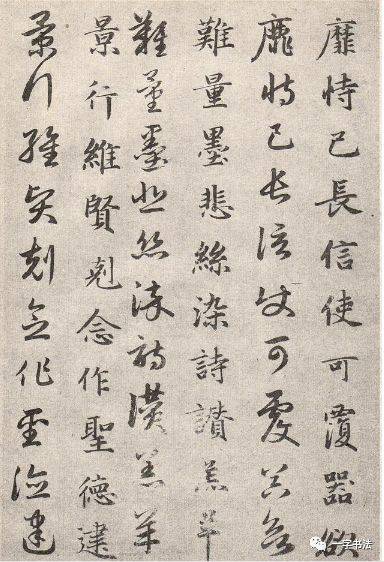 靡恃己長信使可覆器欲
靡恃己長信使可覆器欲
難量墨悲絲染詩讚羔羊
難量墨悲絲染詩讚羔羊
景行維賢剋念作聖德建
景行維賢剋念作聖德建
一字书法